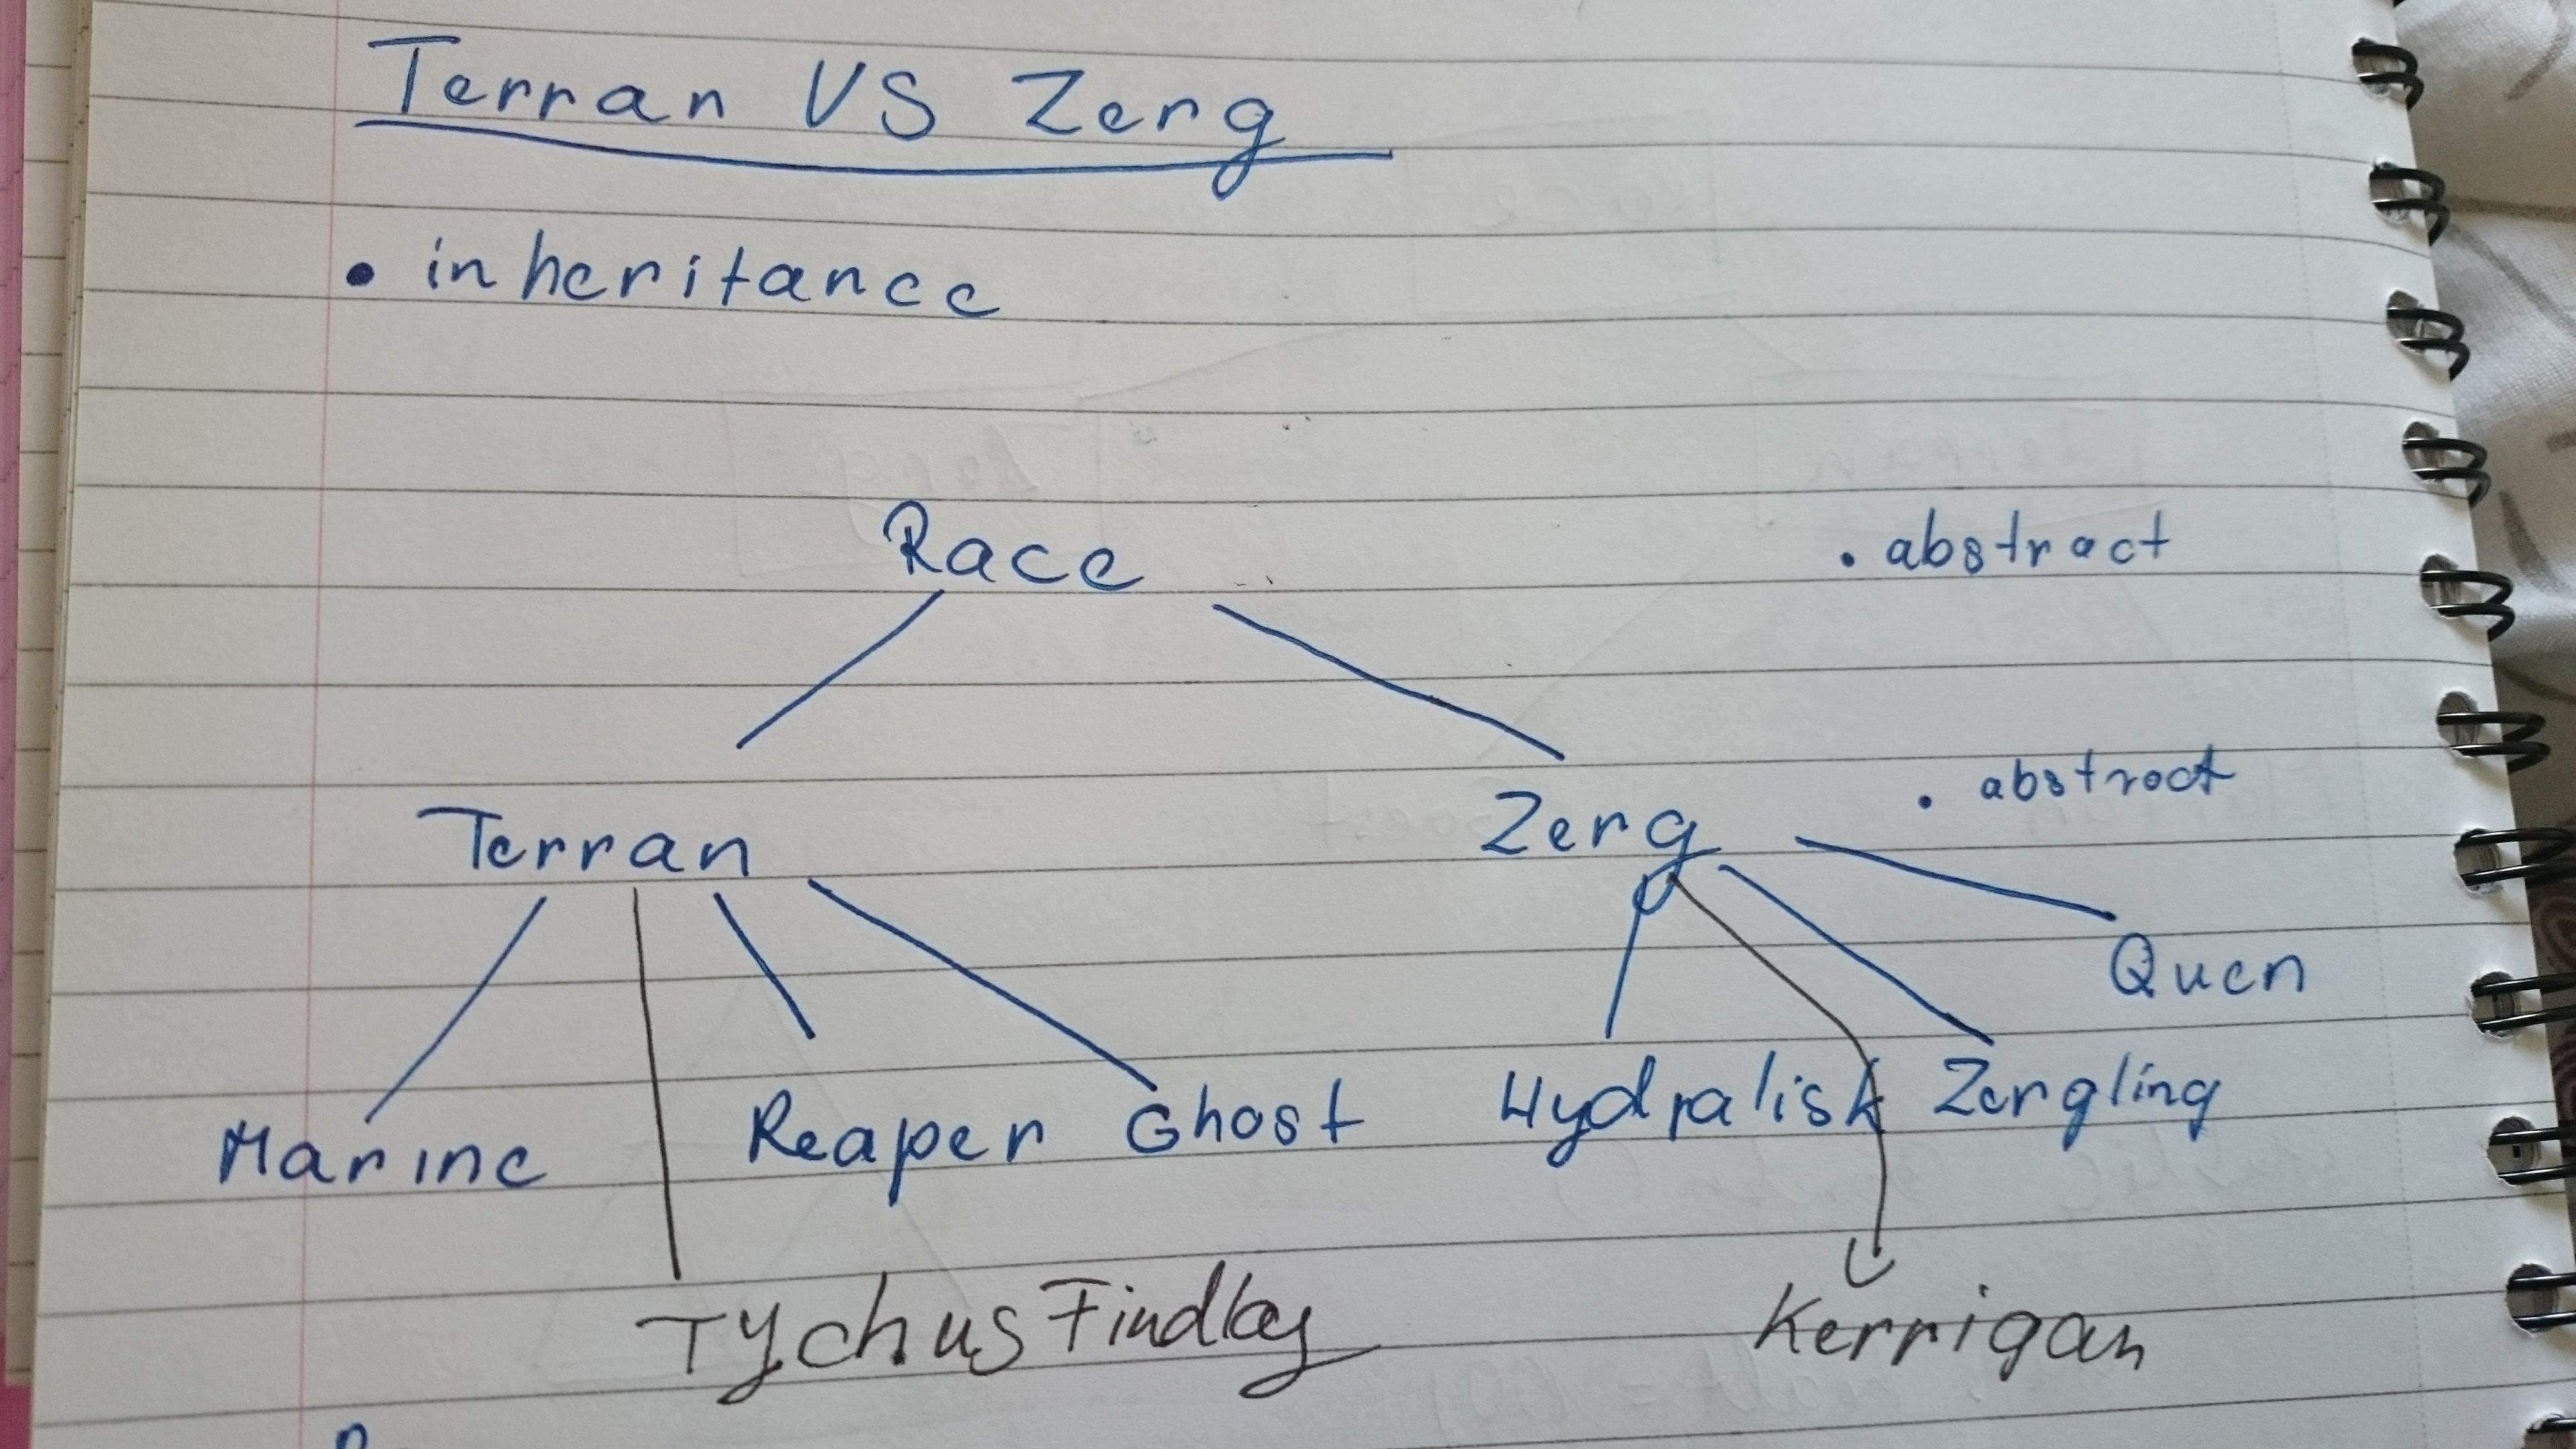 Terran VS Zerg
• inheritance
Race
• abstract
Terran
Zerg
• abstract
Quen
Marine
Reaper
Ghost
Hydralisk
Zergling
Tychus Findlay
Kerrigan